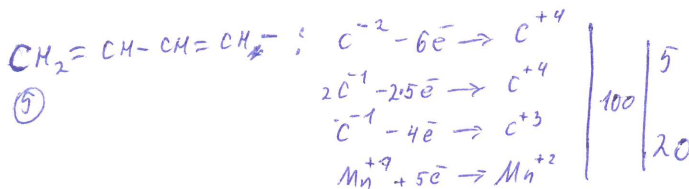 CH₂=CH-CH=CH- : C⁻² - 6e̅ → C⁺⁴
⑤ 2C⁻¹ - 2·5e̅ → C⁺⁴
C⁻¹ - 4e̅ → C⁺³
Mn⁺⁷ + 5e̅ → Mn⁺²
100
5
20